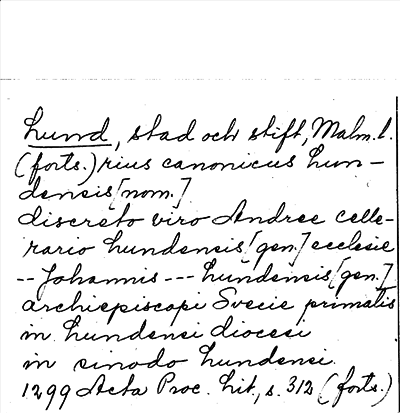 Lund, stad och stift, Malm. l.
(forts.) rius canonicus Lun-
densis [nom.]
discreto viro Andree celle-
rario Lundensis [gen.] ecclesie
-- Johannis --- Lundensis [gen.]
archiepiscopi Svecie primatis
in Lundensi diocesi
in sinodo Lundensi
1299 Acta Proc. Lit, s. 312 (forts.)